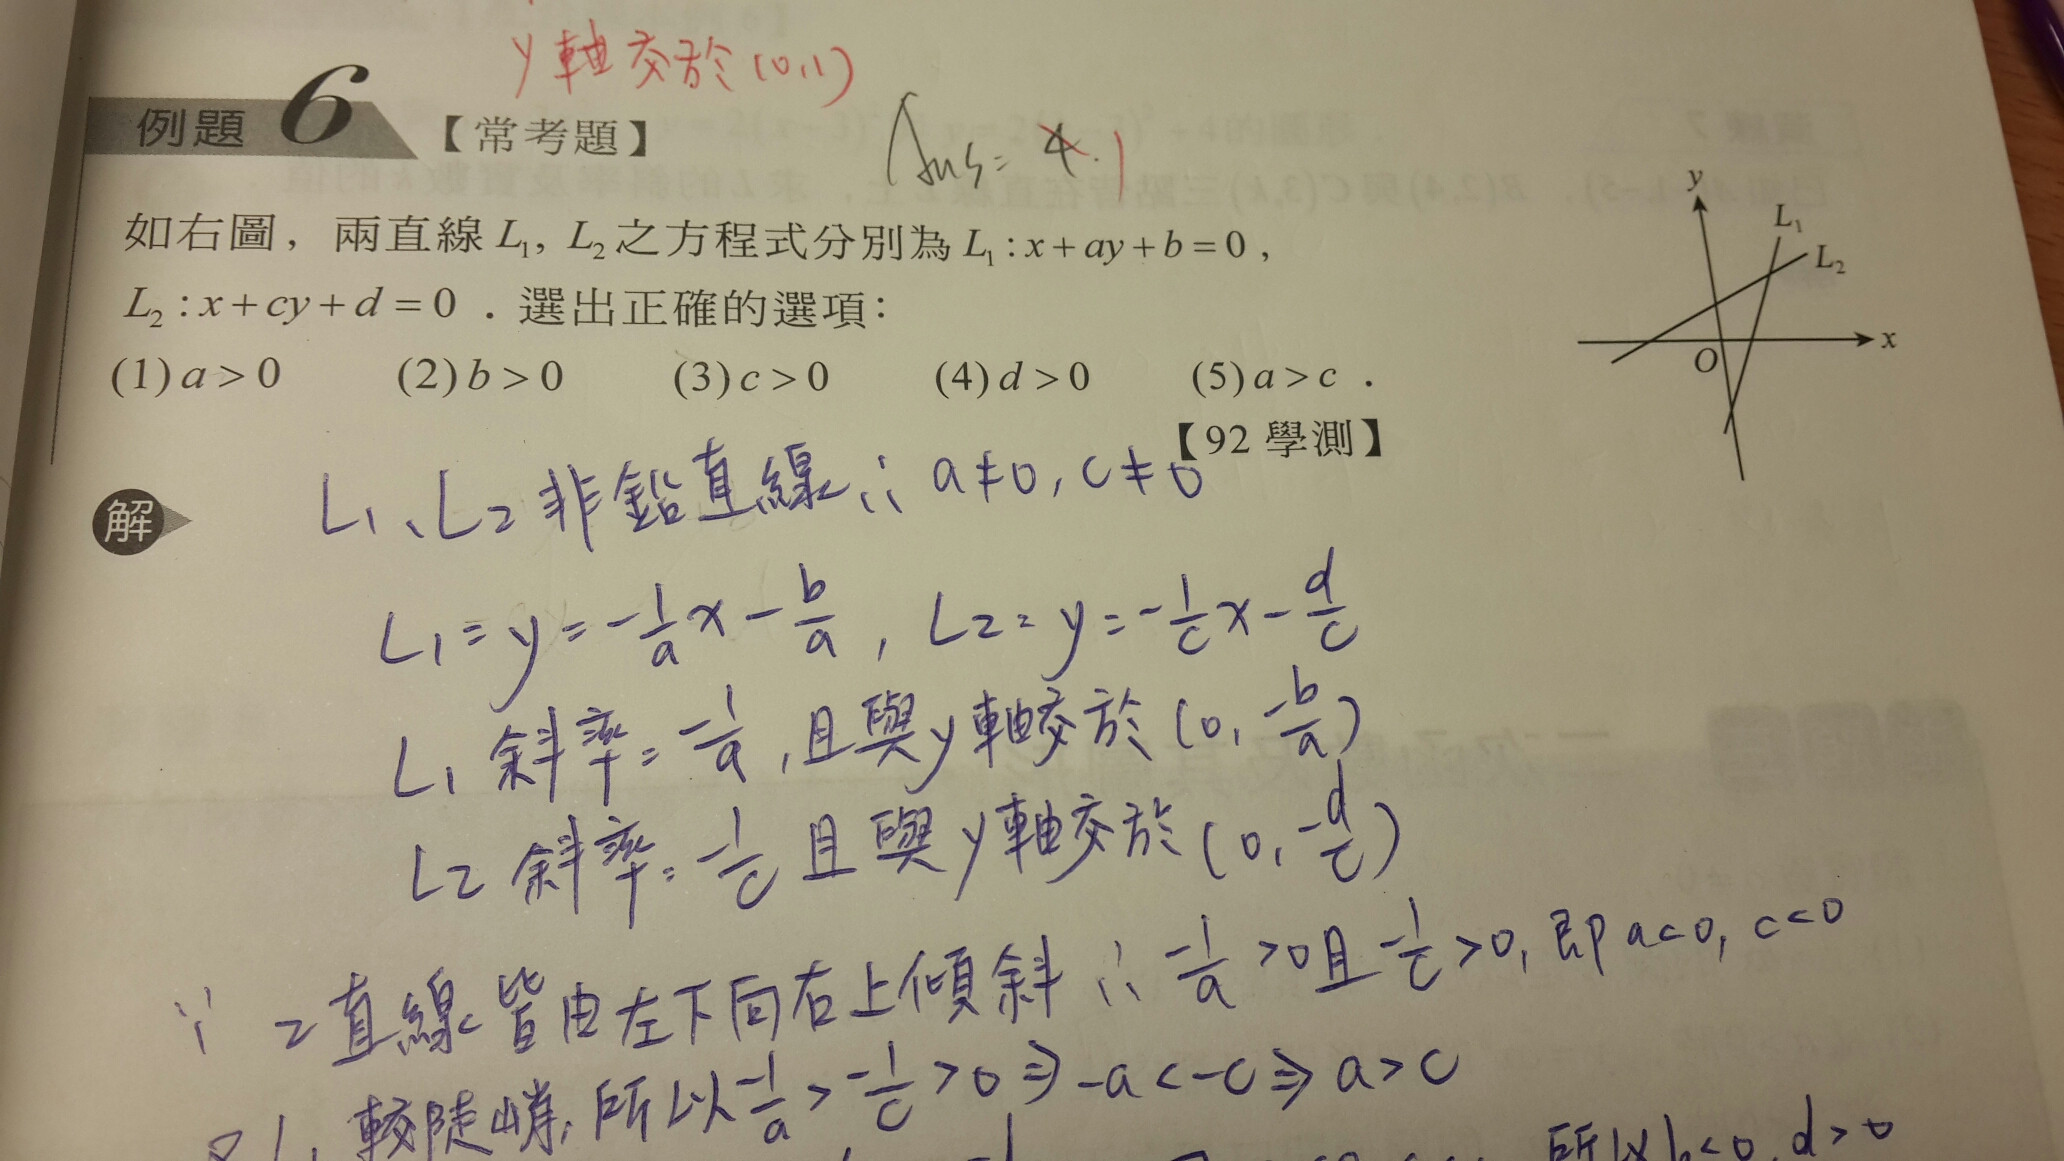 y軸交於(0,1)
例題 6 【常考題】
Ans: 4.
如右圖，兩直線L₁, L₂之方程式分別為L₁:x+ay+b=0，
L₂:x+cy+d=0．選出正確的選項：
(1)a>0 (2)b>0 (3)c>0 (4)d>0 (5)a>c．
【92學測】
y
L₁
L₂
x
O
解
L₁、L₂非鉛直線∴a≠0, c≠0
L₁: y=-1/a x-b/a, L₂: y=-1/c x-d/c
L₁斜率=-1/a, 且與y軸交於(0,-b/a)
L₂斜率=-1/c且與y軸交於(0,-d/c)
∵2直線皆由左下向右上傾斜∴-1/a>0且-1/c>0, 即a<0, c<0
較陡峭, 所以-1/a>-1/c>0⇒-a<-c⇒a>c
所以b<0, d>0